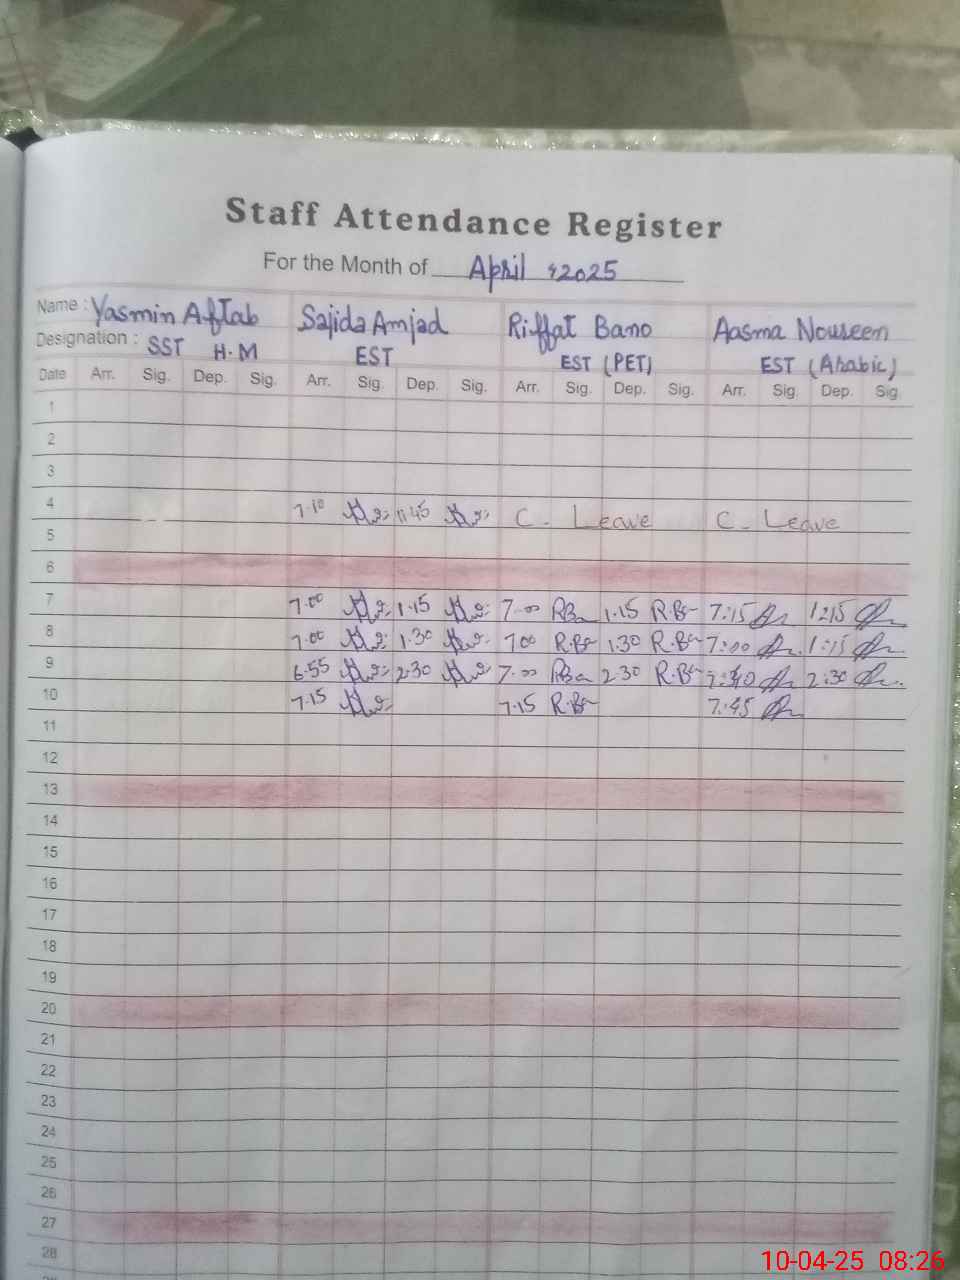 Staff Attendance Register
For the Month of April 2025
Name : Yasmin Aftab Sajida Amjad Riffat Bano Aasma Noureen
Designation : SST H.M EST EST (PET) EST (Arabic)
Date Arr. Sig. Dep. Sig. Arr. Sig. Dep. Sig. Arr. Sig. Dep. Sig. Arr. Sig. Dep. Sig.
1
2
3
4 7.10 11.45 C. Leave C. Leave
5
6
7 7.00 1.15 7.00 RBa 1.15 R.Ba 7:15 1215
8 7.00 1.30 700 R.Ba 1.30 R.Ba 7:00 1:15
9 6.55 2.30 7.00 RBa 2.30 R.Ba 2:30
10 7.15 7.15 R.Ba 7:45
11
12
13
14
15
16
17
18
19
20
21
22
23
24
25
26
27
28
10-04-25 08:26